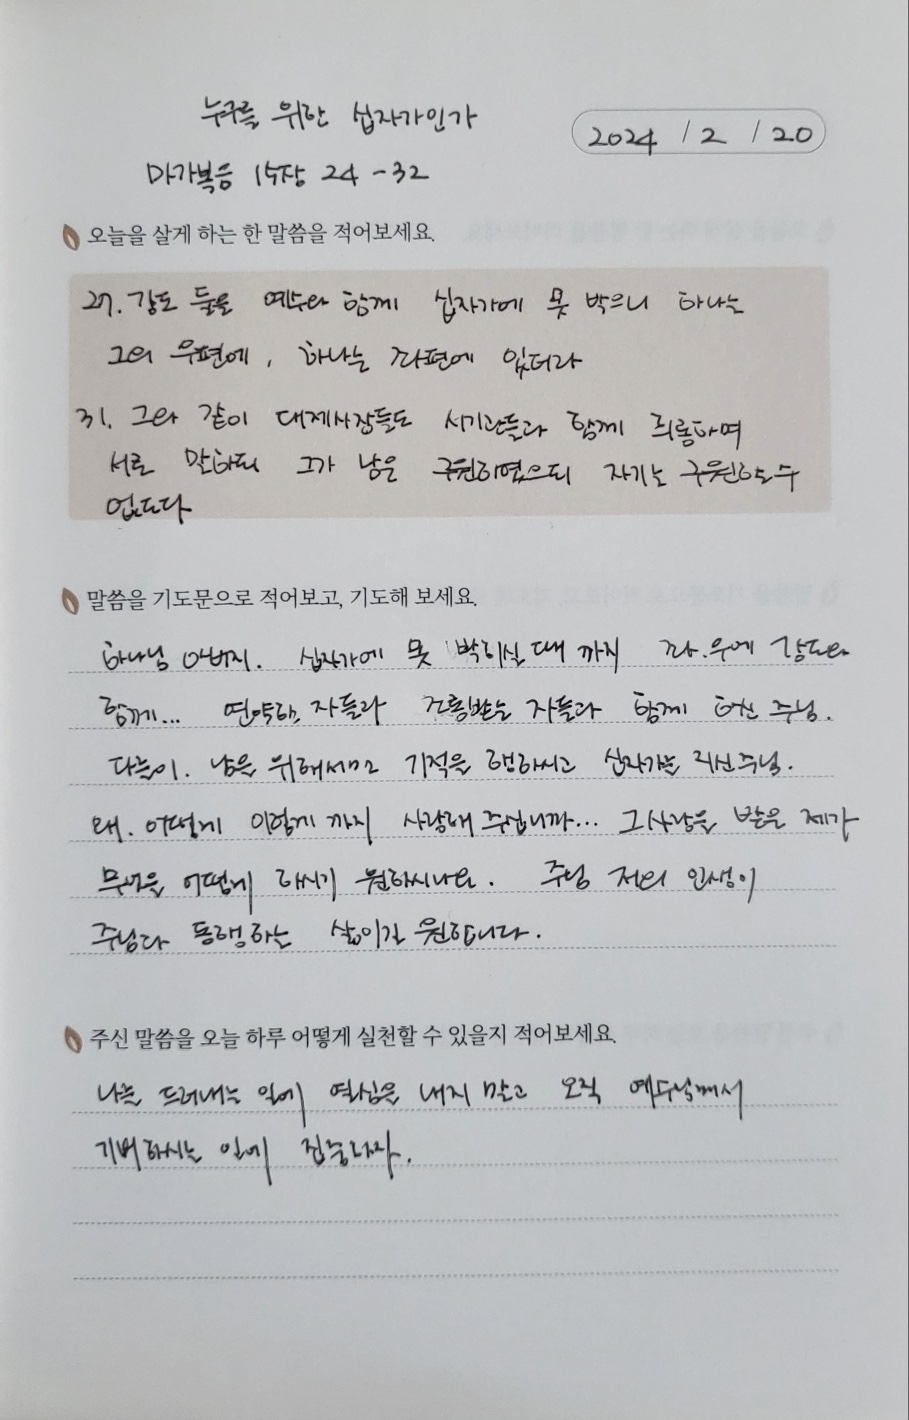 누구를 위한 십자가인가
2024 / 2 / 20
마가복음 15장 24 - 32
오늘을 살게 하는 한 말씀을 적어보세요.
27. 강도 둘을 예수와 함께 십자가에 못 박으니 하나는
그의 우편에, 하나는 좌편에 있더라
31. 그와 같이 대제사장들도 서기관들과 함께 희롱하며
서로 말하되 그가 남은 구원하였으되 자기는 구원할 수
없도다
말씀을 기도문으로 적어보고, 기도해 보세요.
하나님 아버지. 십자가에 못 박히실 때 까지 좌.우에 강도와
함께... 연약한 자들과 조롱받는 자들과 함께 하신 주님.
다늘이. 남을 위해서만 기적을 행하시고 십자가는 지신주님.
왜. 어떻게 이렇게 까지 사랑해 주십니까... 그 사랑을 받은 제가
무엇을 어떻게 하시기 원하시나요. 주님 저의 인생이
주님과 동행하는 삶이길 원합니다.
주신 말씀을 오늘 하루 어떻게 실천할 수 있을지 적어보세요.
나를 드러내는 일에 열심을 내지 말고 오직 예수님께서
기뻐하시는 일에 집중하자.